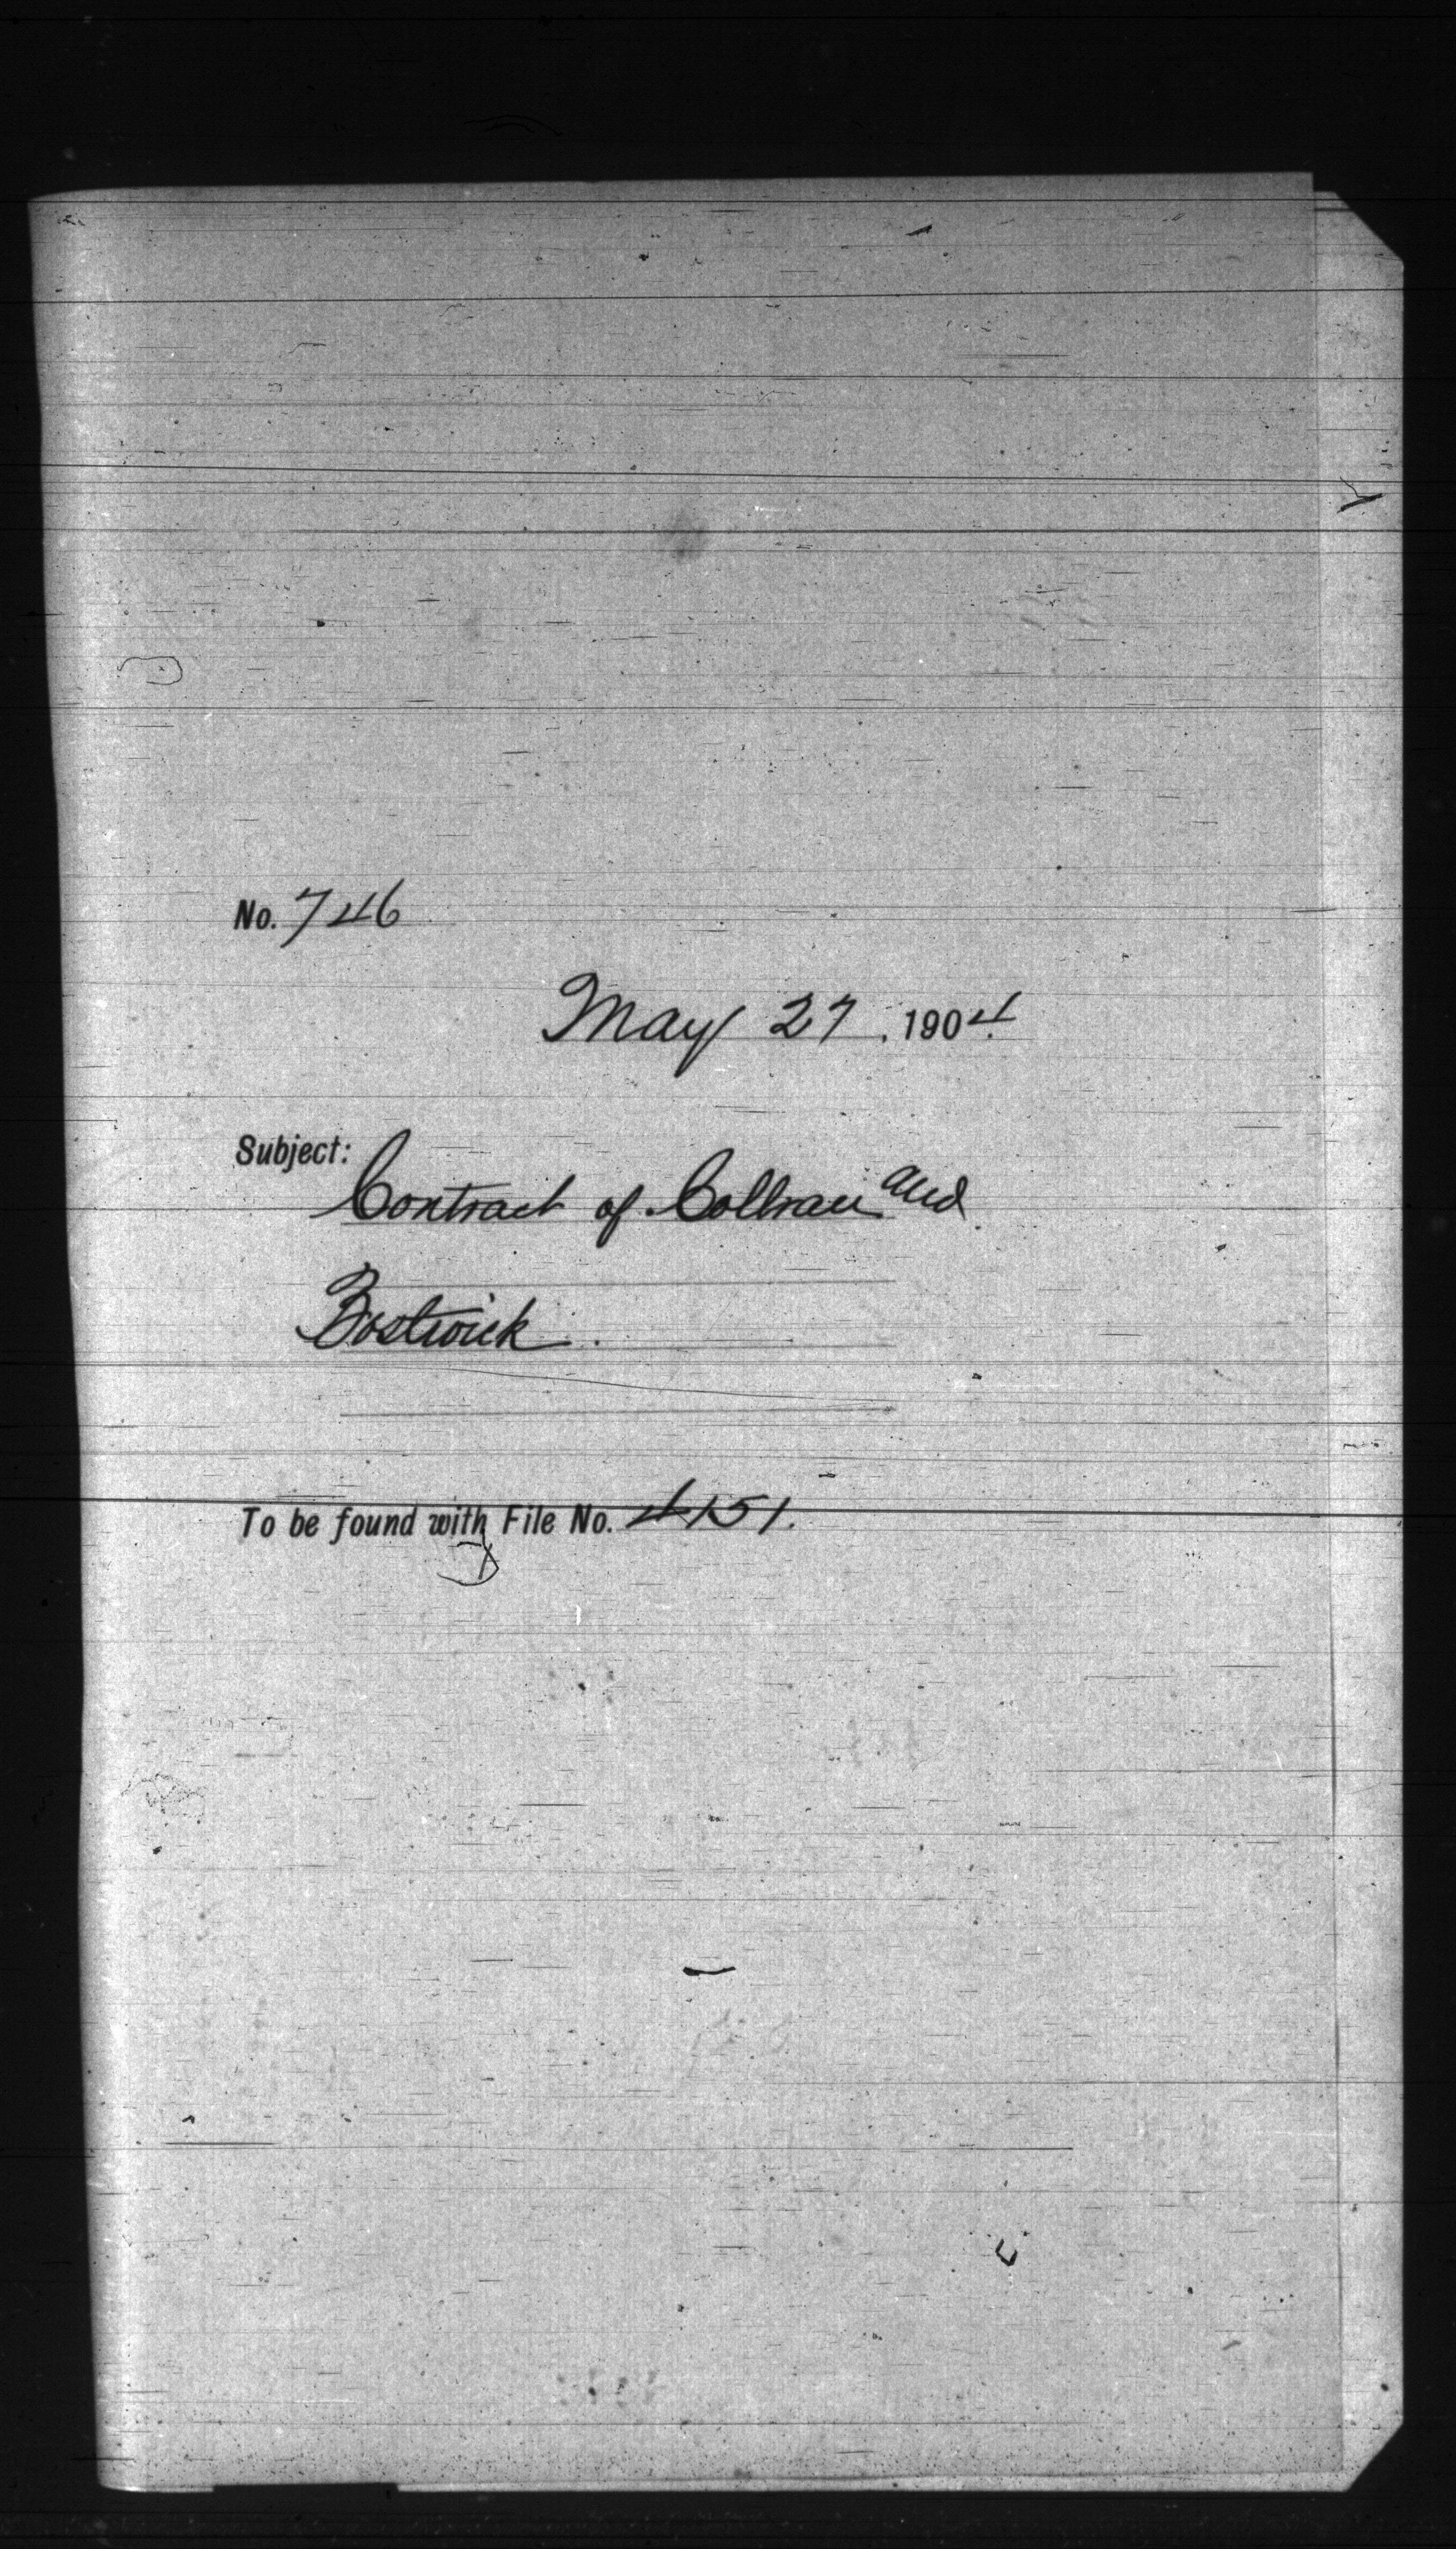 No. 746
May 27, 1904.
Subject:
Contract of Collran and
Bostwick.
To be found with File No. 4151.